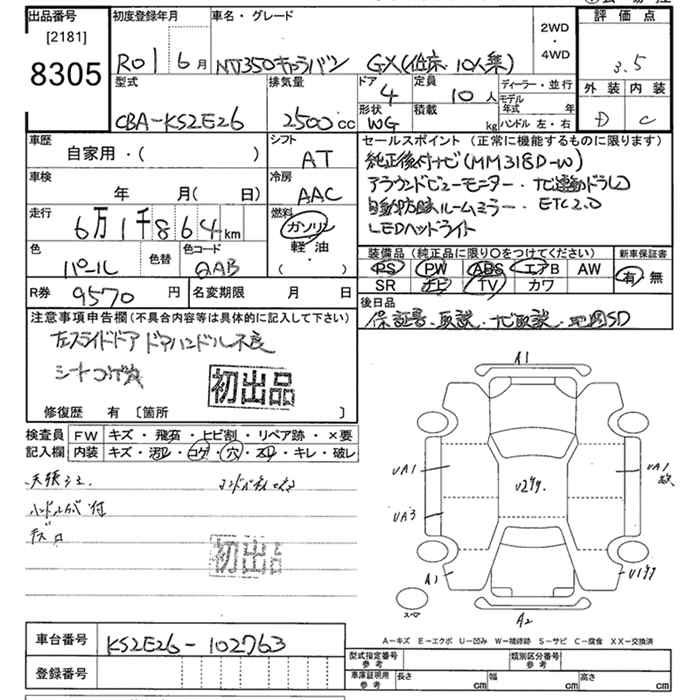 出品番号 初度登録年月 車名・グレード 2WD・4WD 評価点
[2181]
8305
R01 6月 NV350キャラバン GX(低床 10人乗) 3.5
型式 排気量 ドア 4 定員 10人 ディーラー・並行 外装 内装
CBA-KS2E26 2500cc 形状 WG 積載 kg モデル年式 年 ハンドル 左・右 D C
車歴 シフト セールスポイント (正常に機能するものに限ります)
自家用・( ) AT 純正後付ナビ(MM318D-W)
車検 冷房 アラウンドビューモニター・ナビ連動ドラレコ
年 月(日) AAC 自動防眩ルームミラー・ETC2.0
走行 燃料 LEDヘッドライト
6万1千864km ガソリン
軽・油
・( )
色 色替 色コード 装備品 (純正品に限り○をつけてください) 新車保証書
パール QAB PS PW ABS エアB AW 有・無
SR ナビ TV カワ
R券 9570円 名変期限 月 日 後日品
保証書・取説・ナビ取説・地図SD
注意事項申告欄(不具合内容等は具体的に記入して下さい)
左スライドドア ドアハンドル不良
シートコゲ穴
初出品
修復歴 有 〔箇所 〕
検査員 FW キズ・飛石・ヒビ割・リペア跡・×要
記入欄 内装 キズ・汚レ・コゲ・穴・スレ・キレ・破レ
天張シミ
ハンドルカバー付
初出品
A1
UA1 UA1
U277
UA3
A1 U177
スペア A2
A-キズ E-エクボ U-凹み W-補修跡 S-サビ C-腐食 XX-交換済
車台番号 KS2E26-102763
型式指定番号 参考 類別区分番号 参考
登録番号
車庫証明用 参考 長さ cm 幅 cm 高さ cm